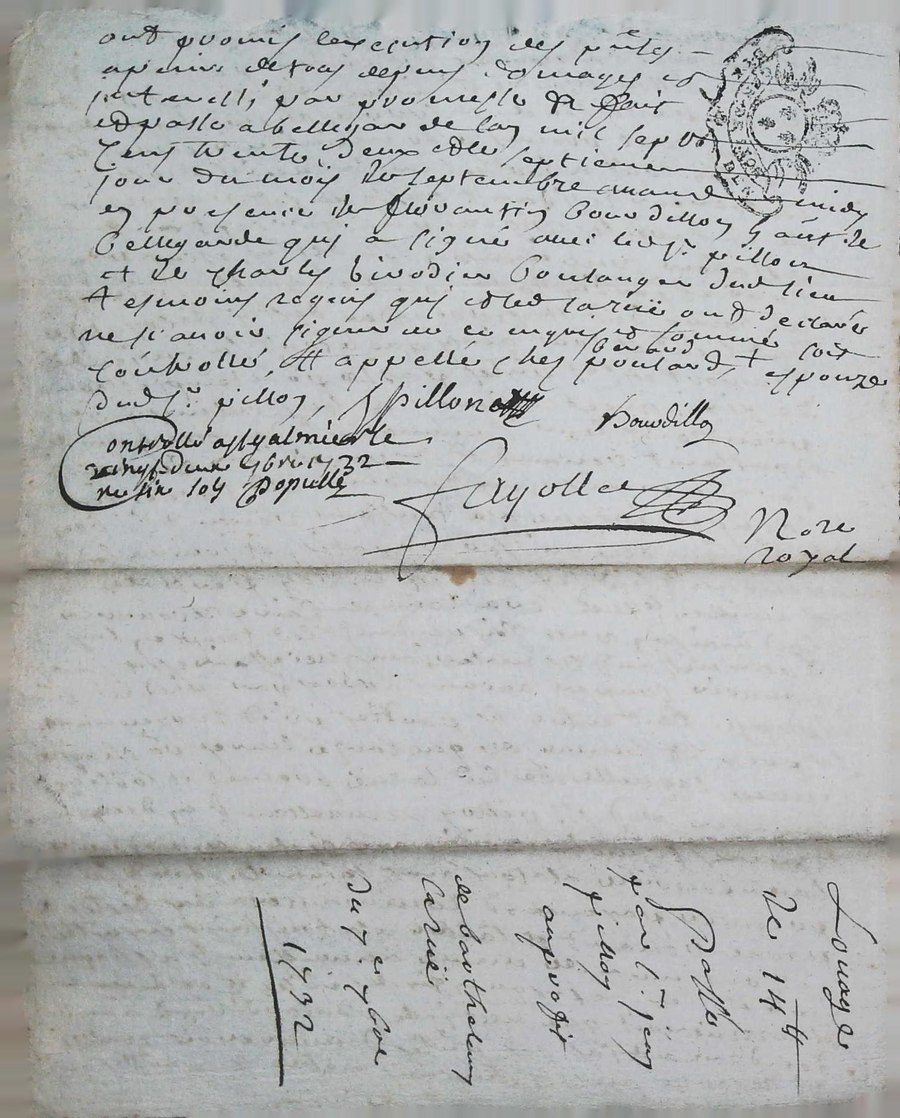 ont promis l'execution des p̃ñtes
a peine de tous depens domages et
interests par promesse &c fait
et passé a bellegarde lan mil sept
cent trente deux et le septieme
jour du mois de septembre avant midy
en presence de florantin bourdillon  de
bellegarde qui a signé avec led sr. pillon
et de Charles  boulanger dud lieu
tesmoins requis qui et led larüe ont declaré
ne scavoir signer de ce enquis et sommé soit
controllé, appellé chez  espouze
dud sr. pillon, JPillon
Bourdillon
Controllé a st galmier le
vingt deux 7bre 1732
 Populle
fayolle
Nore
royal
Louage
de 14 ₶
Passé
par sr. jean
pillon
au profit
de barthelemy
larüe
du 7e 7bre
1732